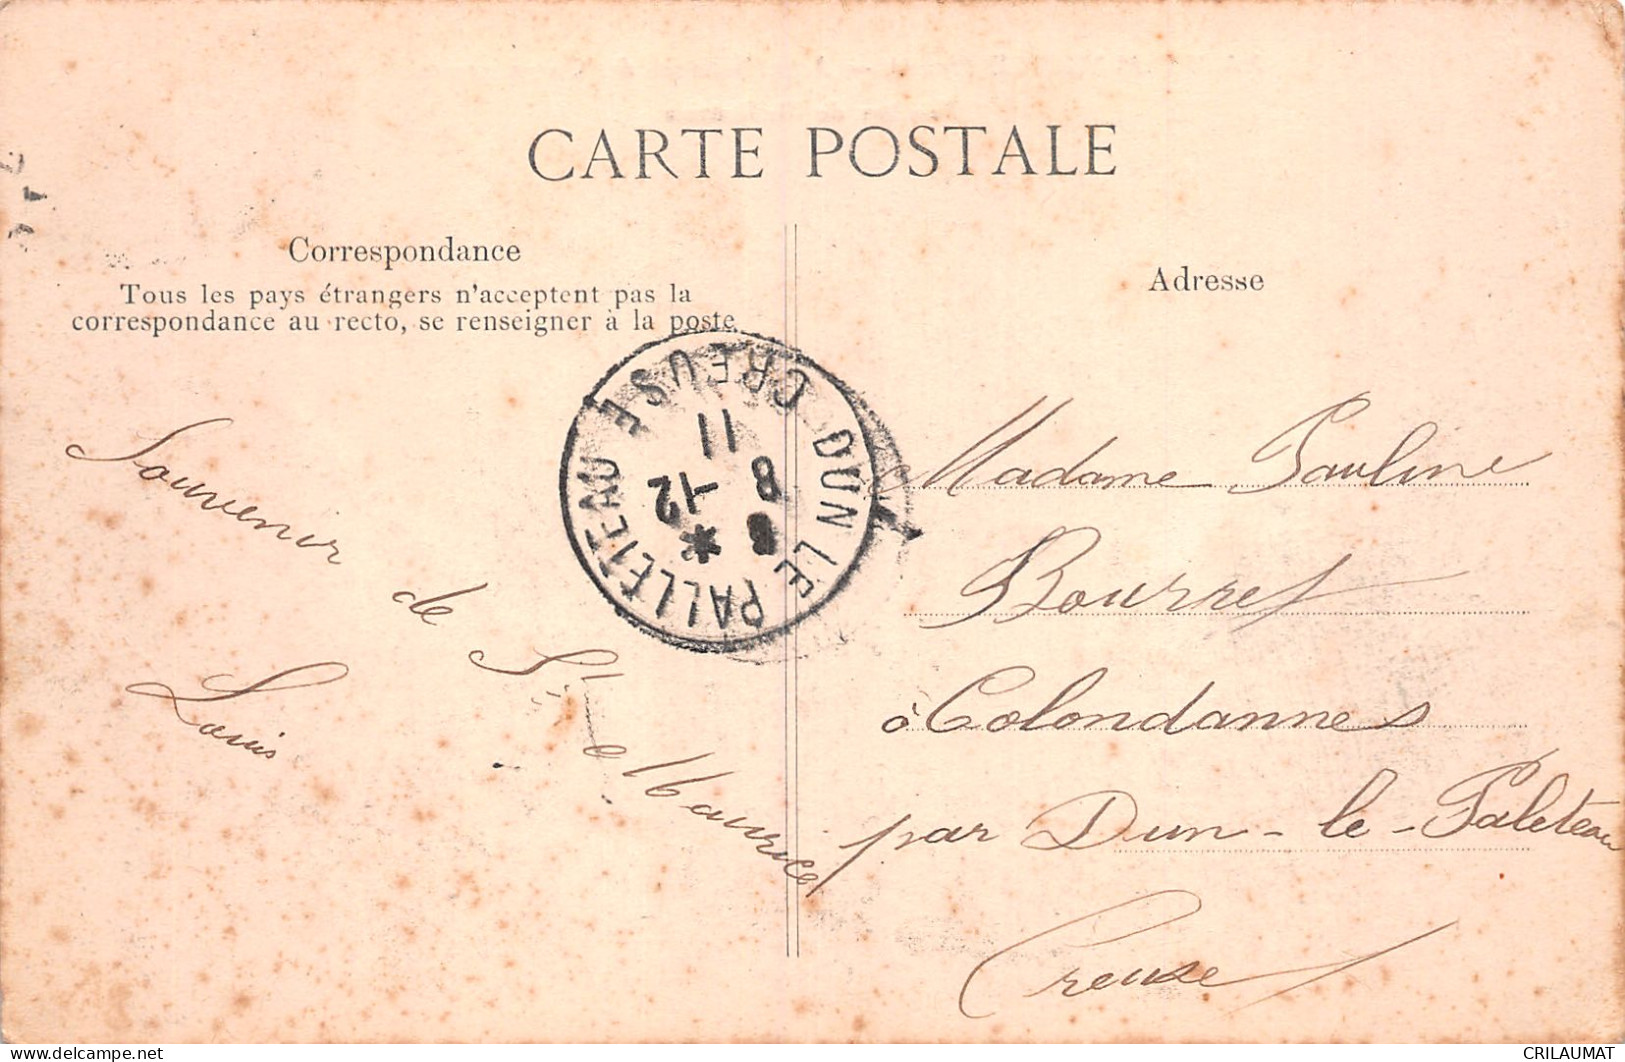 CARTE POSTALE
Correspondance
Tous les pays étrangers n'acceptent pas la
correspondance au recto, se renseigner à la poste
Adresse
Souvenir de Ste Maurice
Louis
DUN LE PALLETEAU
CREUSE
11
8
-12
*
Madame Pauline
Bourret
à Colondannes
par Dun-le-Paleteau
Creuse
delcampe.net
CRILAUMAT